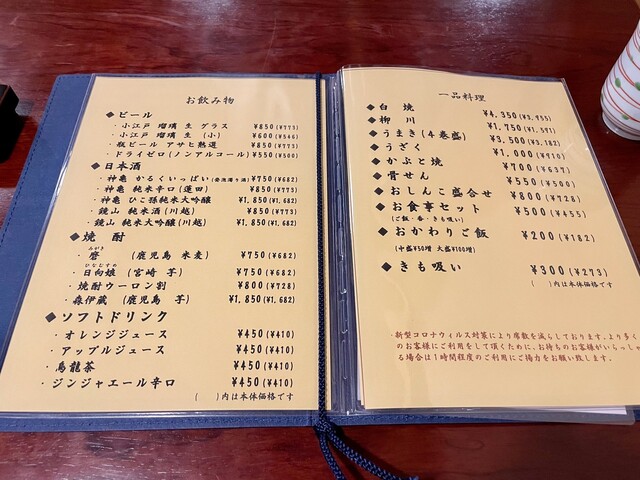 お飲み物
◆ビール
・小江戸 瑠璃 生 グラス ¥850(¥773)
・小江戸 瑠璃 生 (小) ¥600(¥546)
・瓶ビール アサヒ熟選 ¥850(¥773)
・ドライゼロ(ノンアルコール) ¥550(¥500)
◆日本酒
・神亀 かるくいっぱい ¥750(¥682)
・神亀 純米辛口(蓮田) ¥850(¥773)
・神亀 ひこ孫純米大吟醸 ¥1,850(¥1,682)
・鏡山 純米酒(川越) ¥850(¥773)
・鏡山 純米大吟醸(川越) ¥1,850(¥1,682)
◆焼 酎
・磨 (鹿児島 米麦) ¥750(¥682)
・日向娘 (宮崎 芋) ¥750(¥682)
・焼酎ウーロン割 ¥800(¥728)
・森伊蔵 (鹿児島 芋) ¥1,850(¥1,682)
◆ソフトドリンク
・オレンジジュース ¥450(¥410)
・アップルジュース ¥450(¥410)
・烏龍茶 ¥450(¥410)
・ジンジャエール辛口 ¥450(¥410)
( )内は本体価格です
一品料理
◆白 焼 ¥4,350(¥3,955)
◆柳 川 ¥1,750(¥1,591)
◆うまき(4巻盛) ¥3,500(¥3,182)
◆うざく ¥1,000(¥910)
◆かぶと焼 ¥700(¥637)
◆骨せん ¥550(¥500)
◆おしんこ盛合せ ¥800(¥728)
◆お食事セット ¥500(¥455)
(ご飯・香・きも吸い)
◆おかわりご飯 ¥200(¥182)
(中盛¥50増 大盛¥100増)
◆きも吸い ¥300(¥273)
( )内は本体価格です
・新型コロナウィルス対策により席数を減らしております。より多く
のお客様にご利用をして頂くために、お待ちのお客様がいらっしゃ
る場合は1時間程度のご利用にご協力をお願い致します。